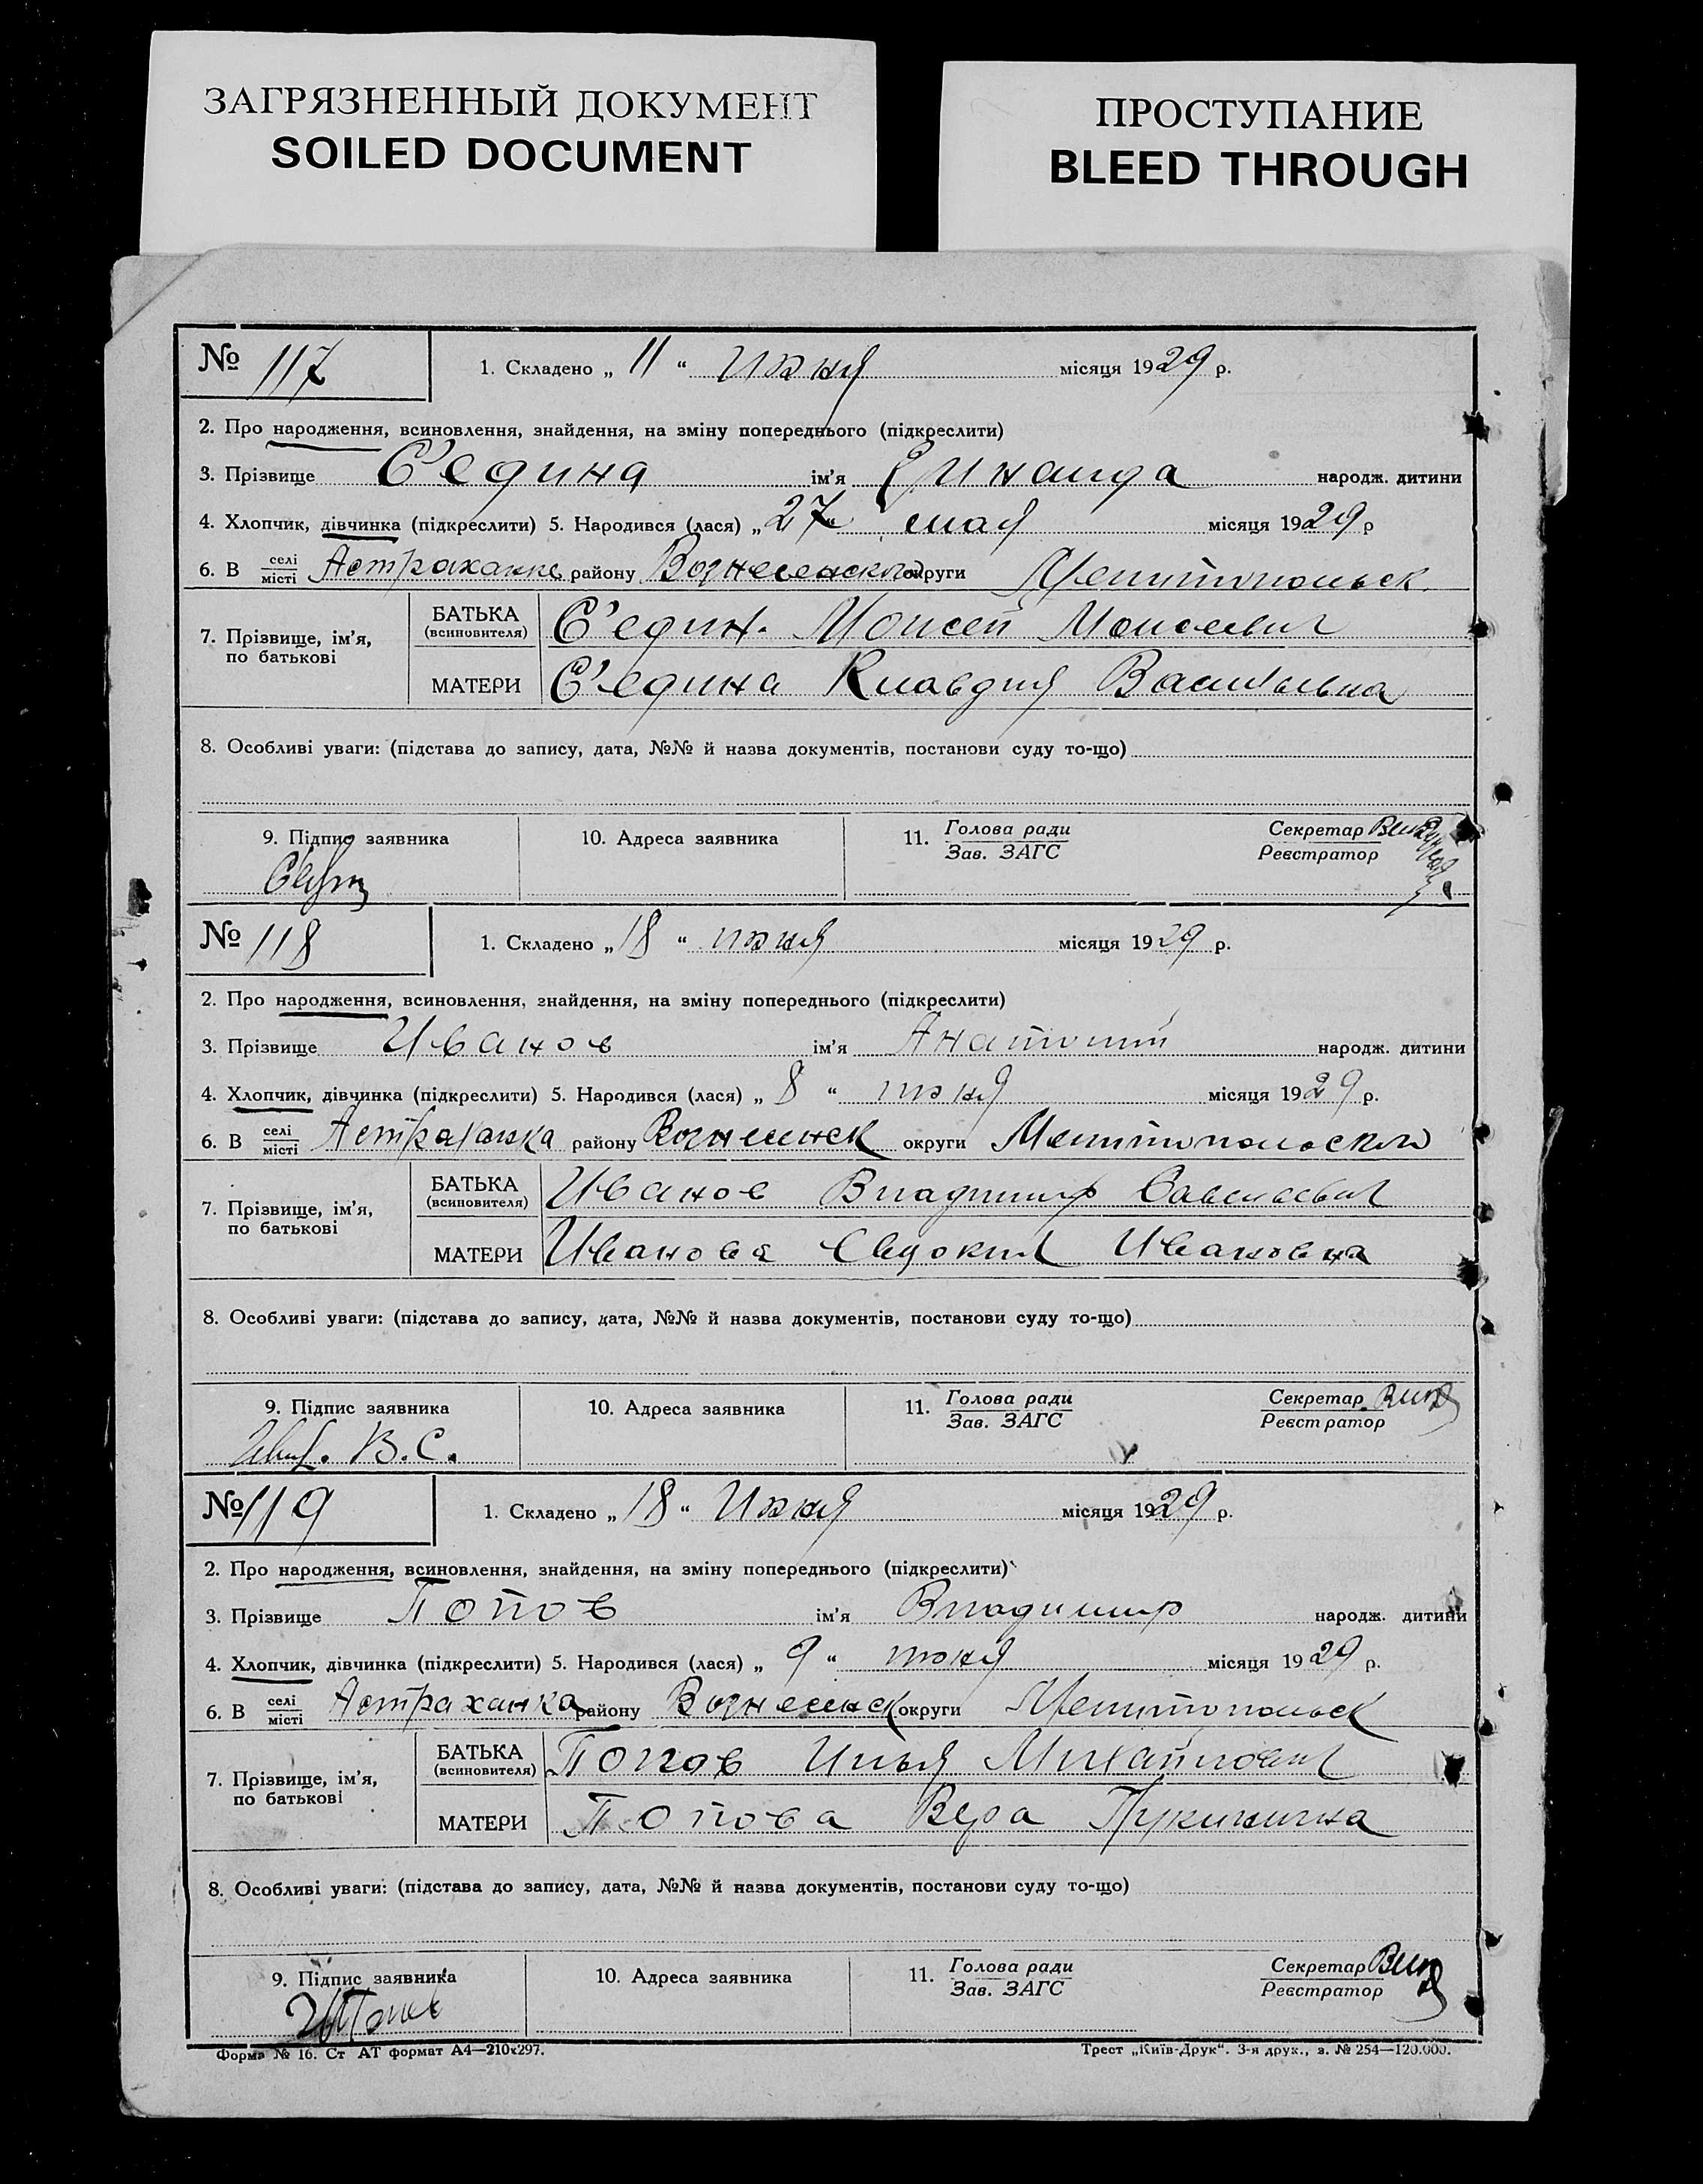 ЗАГРЯЗНЕННЫЙ ДОКУМЕНТ
SOILED DOCUMENT
ПРОСТУПАНИЕ
BLEED THROUGH
№ 117 1. Складено „ 11 “ Июня місяця 1929 р.
2. Про народження, всиновлення, знайдення, на зміну попереднього (підкреслити)
3. Прізвище С'едина ім'я Зинаида народж. дитини
4. Хлопчик, дівчинка (підкреслити) 5. Народився (лася) „ 27 “ мая місяця 1929 р
6. В селі/місті Астраханке району Вознесенского округи Мелитопольск.
7. Прізвище, ім'я, по батькові
БАТЬКА (всиновителя) С'един. Моисей Моисеевич
МАТЕРИ С'едина Клавдия Васильевна
8. Особливі уваги: (підстава до запису, дата, №№ й назва документів, постанови суду то-що)
9. Підпис заявника 10. Адреса заявника 11. Голова ради Секретар
Зав. ЗАГС Реєстратор
№ 118 1. Складено „ 18 “ июня місяця 1929 р.
2. Про народження, всиновлення, знайдення, на зміну попереднього (підкреслити)
3. Прізвище Иванов ім'я Анатолий народж. дитини
4. Хлопчик, дівчинка (підкреслити) 5. Народився (лася) „ 8 “ июня місяця 1929 р.
6. В селі/місті Астраханка району Вознесенск округи Мелитопольского
7. Прізвище, ім'я, по батькові
БАТЬКА (всиновителя) Иванов Владимир Савельевич
МАТЕРИ Иванова Евдокия Ивановна
8. Особливі уваги: (підстава до запису, дата, №№ й назва документів, постанови суду то-що)
9. Підпис заявника 10. Адреса заявника 11. Голова ради Секретар
Зав. ЗАГС Реєстратор
В. С.
№ 119 1. Складено „ 18 “ Июня місяця 1929 р.
2. Про народження, всиновлення, знайдення, на зміну попереднього (підкреслити)
3. Прізвище Попов ім'я Владимир народж. дитини
4. Хлопчик, дівчинка (підкреслити) 5. Народився (лася) „ 9 “ июня місяця 1929 р.
6. В селі/місті Астраханка району Вознесенск округи Мелитопольск
7. Прізвище, ім'я, по батькові
БАТЬКА (всиновителя) Попов Илья Михайлович
МАТЕРИ Попова Вера Лукинична
8. Особливі уваги: (підстава до запису, дата, №№ й назва документів, постанови суду то-що)
9. Підпис заявника 10. Адреса заявника 11. Голова ради Секретар
Зав. ЗАГС Реєстратор
Форма № 16. Ст АТ формат А4—210х297. Трест „Київ-Друк“. 3-я друк., з. № 254—120.000.